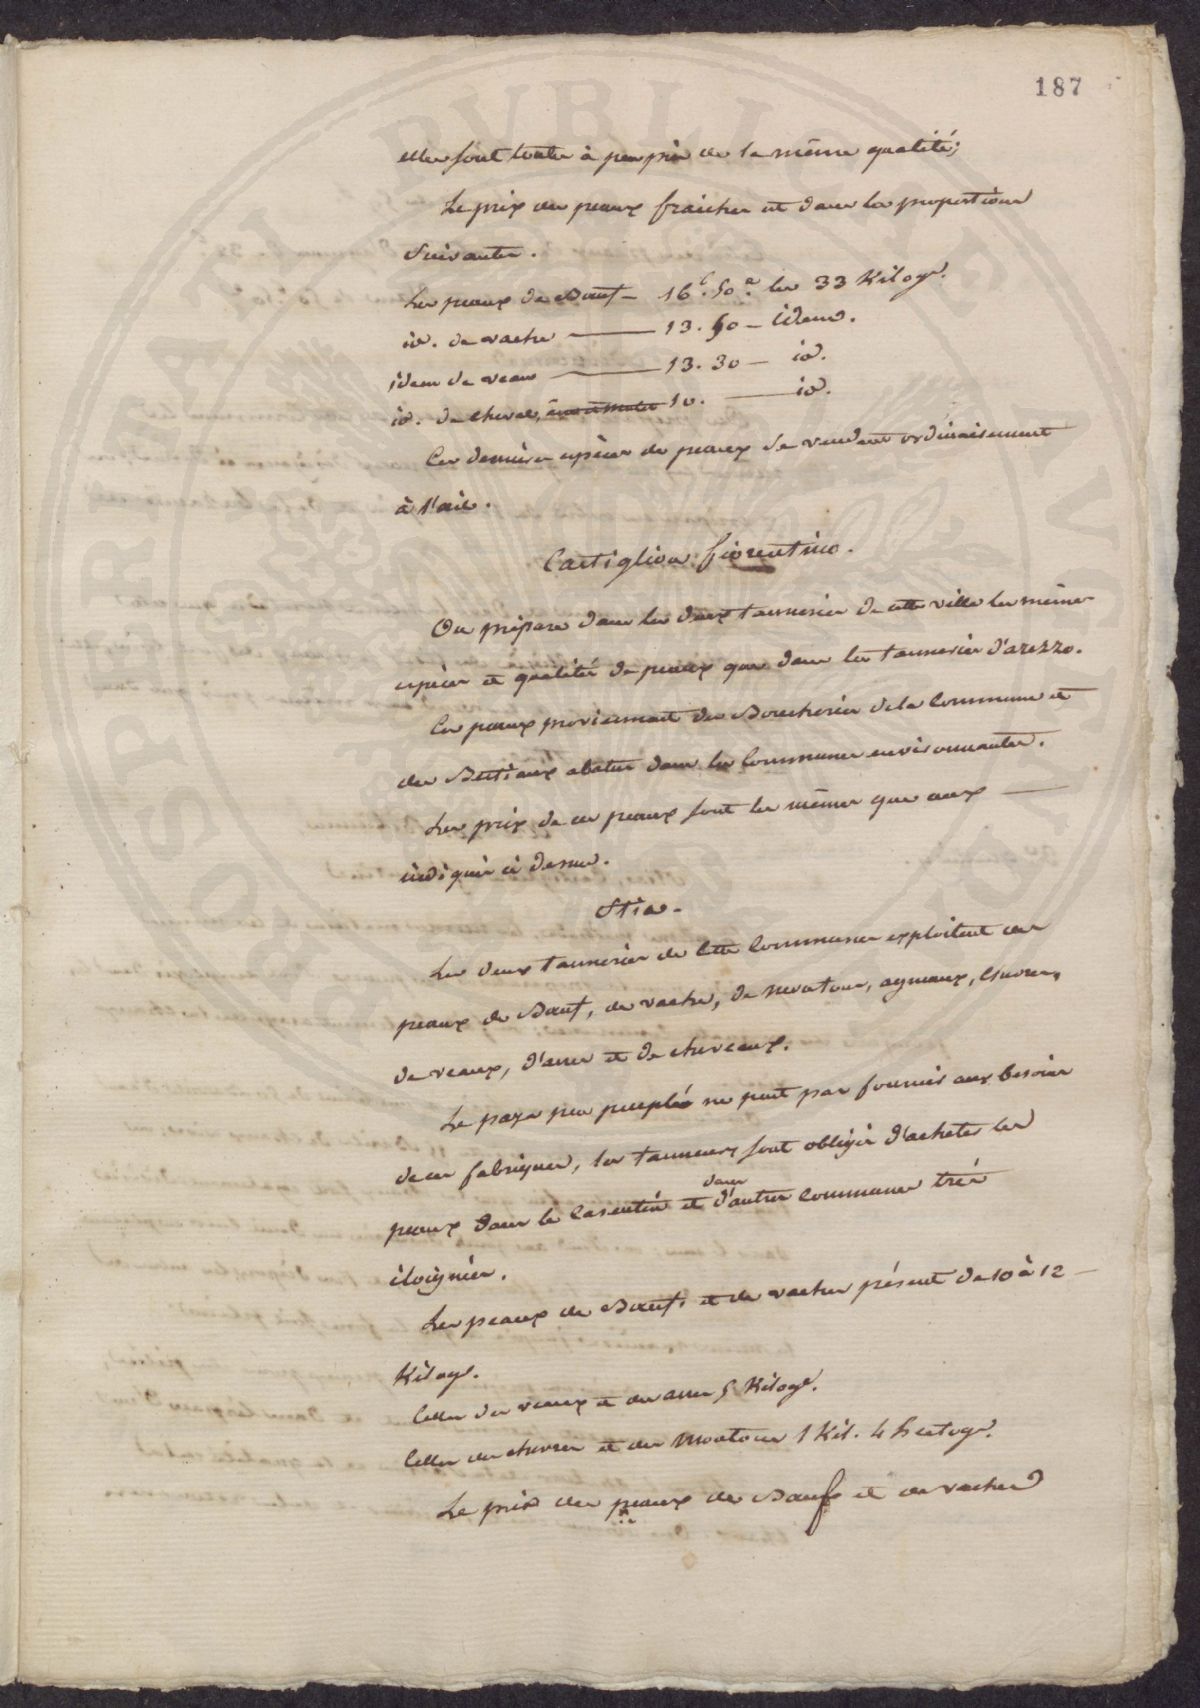 187
elles sont toutes à peu près de la même qualité;
Le prix des peaux fraiches est dans les proportions
suivantes.
Les peaux de Bœuf — 16.f 50.c les 33 Kilogr.
id. de vache — 13. 50 — idem.
idem de veau — 13. 30 — id.
id. de cheval, 10. — id.
Ces dernières espèces de peaux se vendent ordinairement
à l'œil.
Castiglion fiorentino.
On prépare dans les deux tanneries de cette ville les mêmes
espèces et qualités de peaux que dans les tanneries d'arezzo.
Ces peaux proviennent des Boucheries de la Commune et
des Bestiaux abatus dans les Communes environnantes.
Les prix de ces peaux sont les mêmes que ceux
indiqués ci dessus.
Stia.
Les deux tanneries de Cette Commune exploitent des
peaux de Bœuf, de vache, de moutons, agneaux, Chevres,
de veaux, d'anes et de cheveaux.
Le pays peu peuplé ne peut pas fournir aux besoins
de ces fabriques, les tanneurs sont obligés d'acheter les
peaux dans le Casentin et dans d'autres Communes très
éloignées.
Les peaux de Bœufs et de vaches pésent de 10 à 12
Kilogr.
Celles des veaux et des anes 5 Kilogr.
Celles des chevres et des Moutons 1 Kil. 4 hectogr.
Le prix des peaux de Bœuf et de vaches
PVBLIC